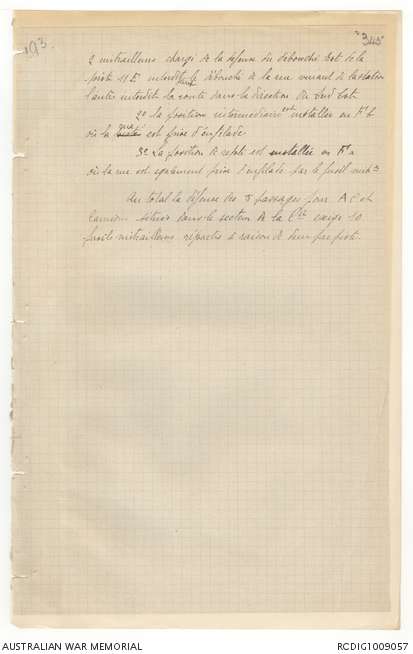 193.
345
2 mitrailleurs chargé de la défense du débouché Est de la
piste 11 E interdit le débouché de la rue venant de la station
l'autre interdit la route dans la direction du Sud Est
2o la position intermédiaire est installée en F b
où la rue est prise d'enfilade
3o La position de repos est installée en F a
où la rue est également prise d'enfilade par le fusil mitr
Au total la défense des 5 passages pour A C et
camions situés dans le secteur de la Cie exige 10
fusils mitrailleurs répartis à raison de deux par poste.
AUSTRALIAN WAR MEMORIAL
RCDIG1009057